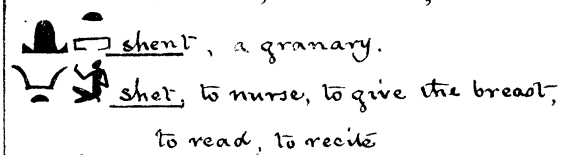 shent, a granary.
shet, to nurse, to give the breast,
to read, to recite